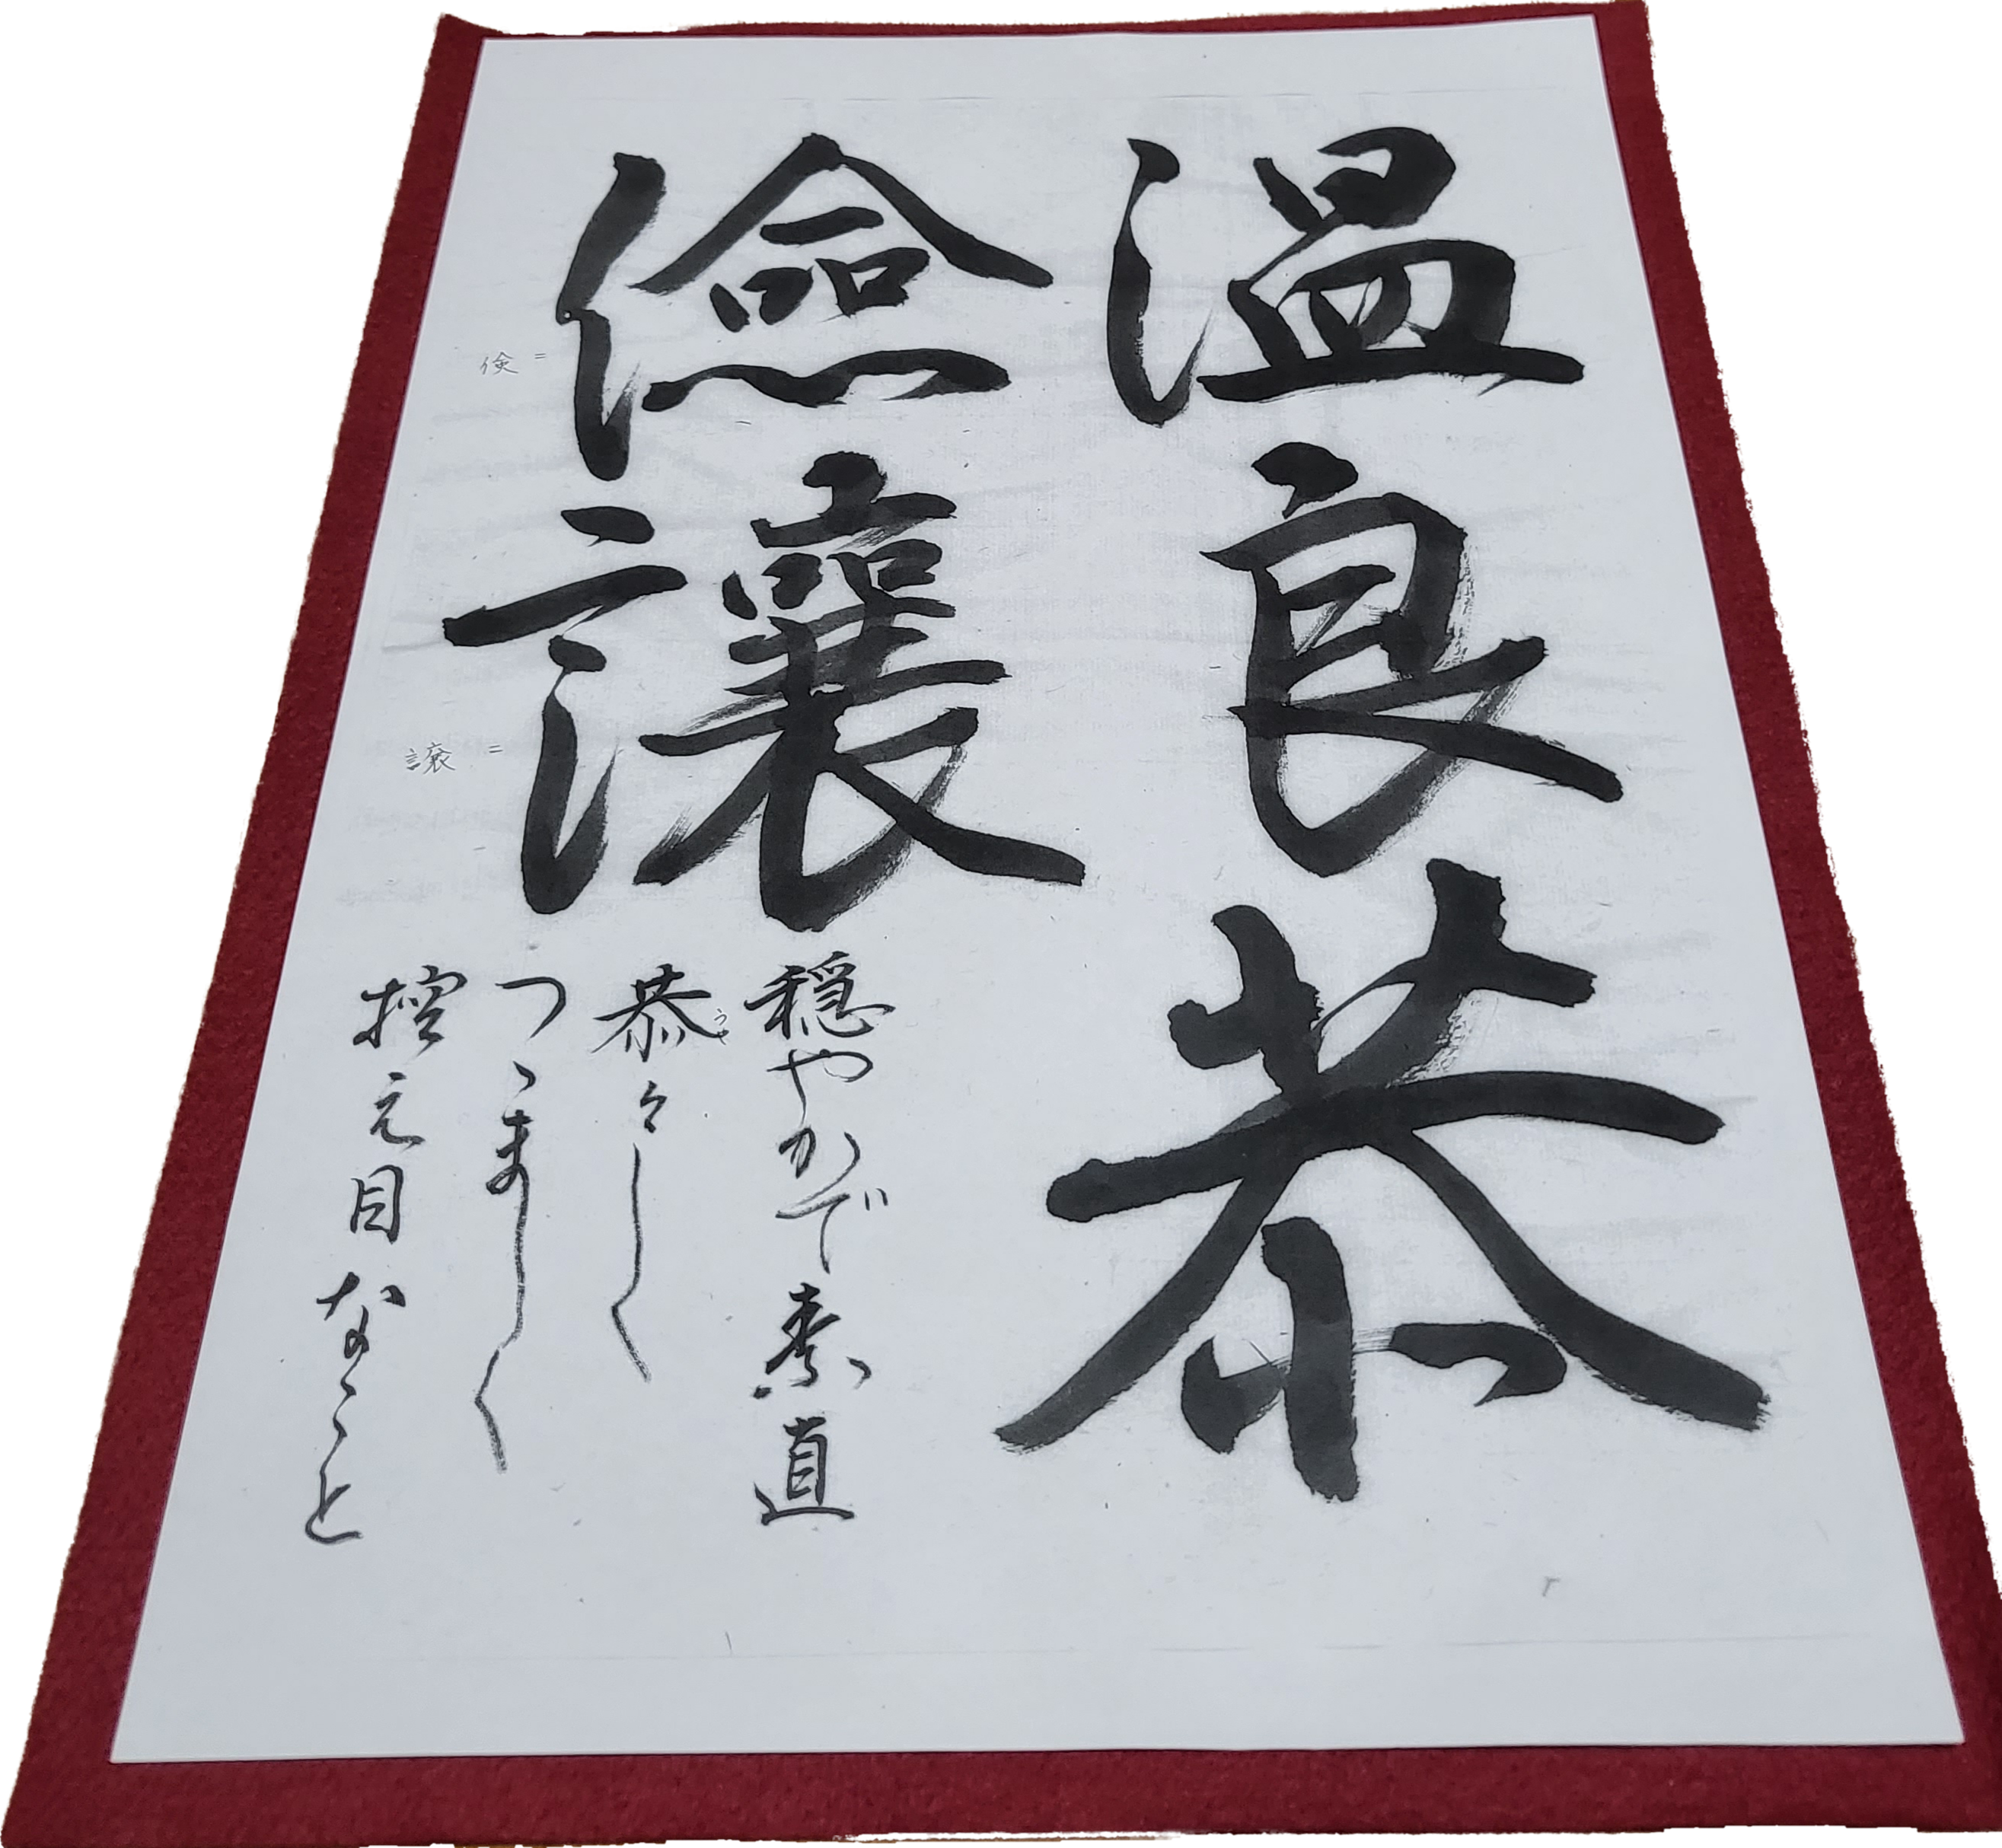 温良恭
儉讓
倹=
譲=
穏やかで素直
恭々しく
うや
つゝましく
控え目なこと